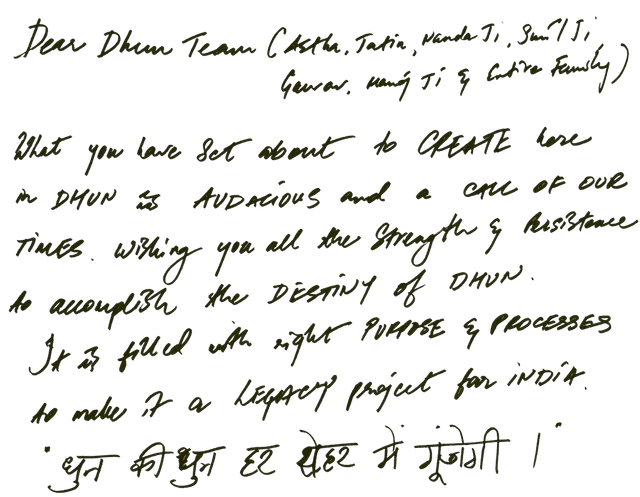 Dear Dhun Team (Astha, Jatin, Nanda Ji, Sunil Ji
Gaurav, Manoj Ji & Entire Family)
What you have set about to CREATE here
in DHUN is AUDACIOUS and a CALL OF OUR
TIMES. Wishing you all the Strength & Persistance
to accomplish the DESTINY of DHUN.
It is filled with right PURPOSE & PROCESSES
to make it a LEGACY project for INDIA.
"धुन की धुन हर शेहर में गूंजेगी ।"